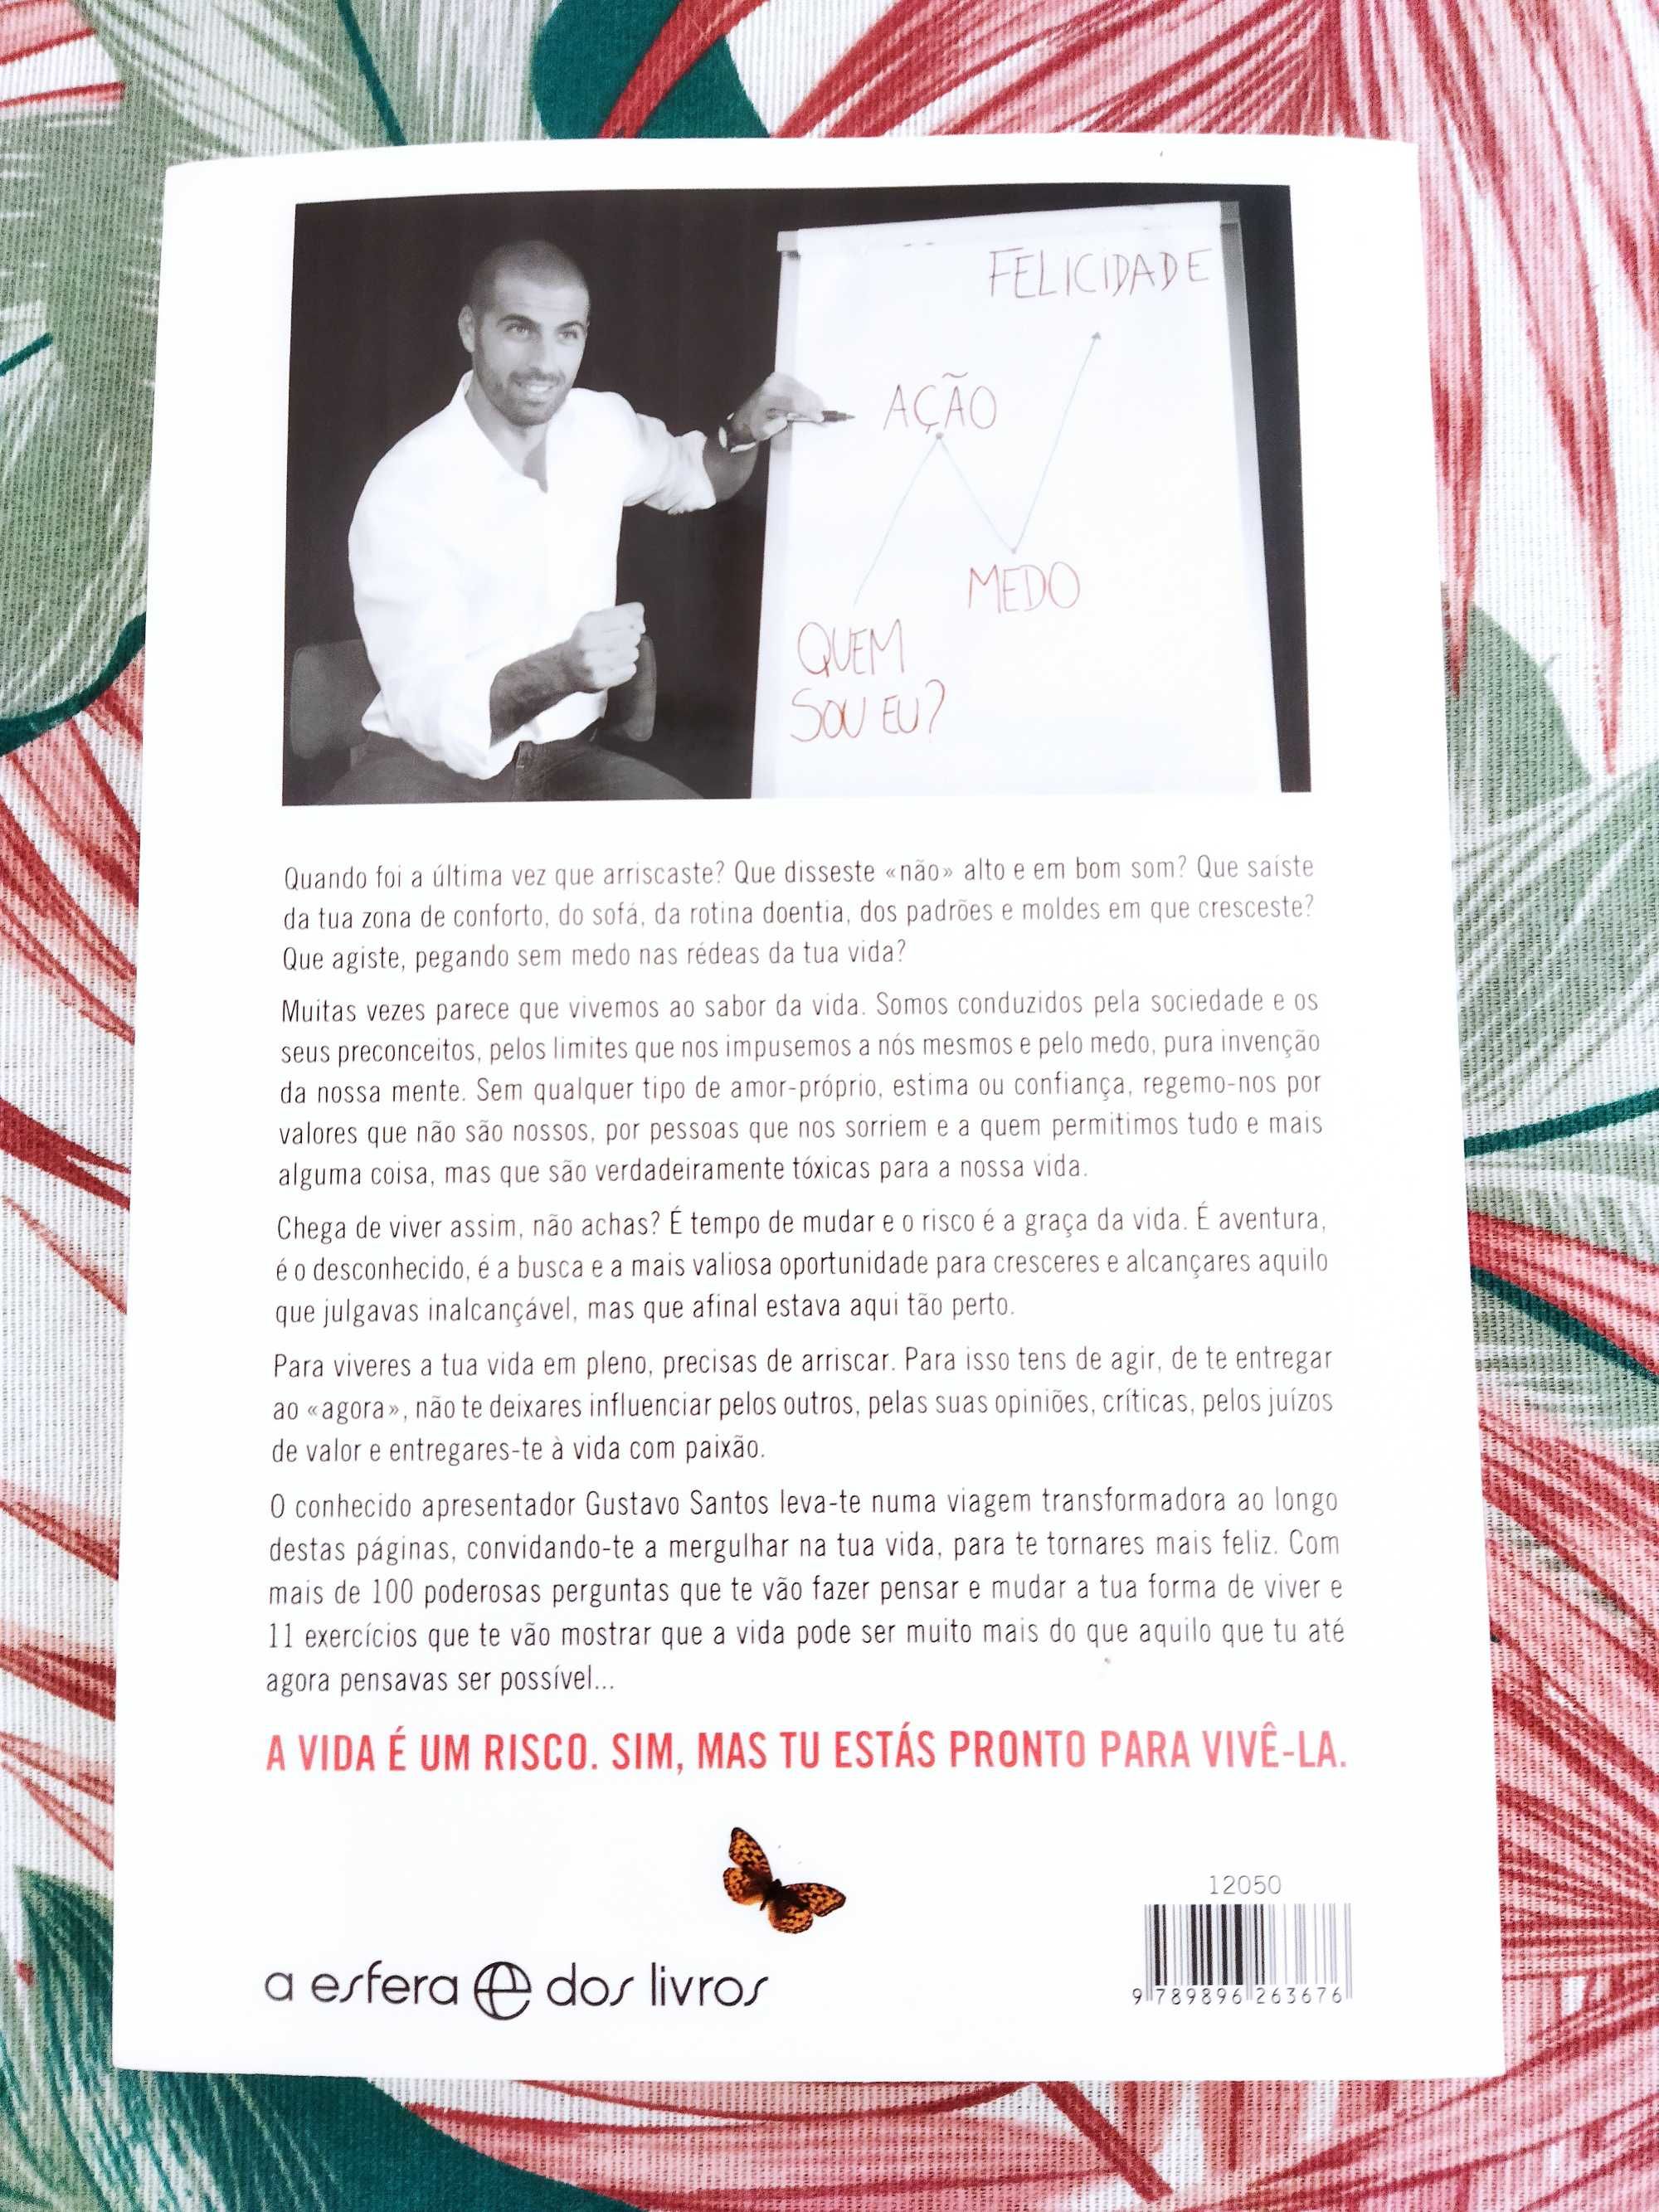 FELICIDADE
AÇÃO
MEDO
QUEM
SOU EU?
Quando foi a última vez que arriscaste? Que disseste «não» alto e em bom som? Que saíste
da tua zona de conforto, do sofá, da rotina doentia, dos padrões e moldes em que cresceste?
Que agiste, pegando sem medo nas rédeas da tua vida?
Muitas vezes parece que vivemos ao sabor da vida. Somos conduzidos pela sociedade e os
seus preconceitos, pelos limites que nos impusemos a nós mesmos e pelo medo, pura invenção
da nossa mente. Sem qualquer tipo de amor-próprio, estima ou confiança, regemo-nos por
valores que não são nossos, por pessoas que nos sorriem e a quem permitimos tudo e mais
alguma coisa, mas que são verdadeiramente tóxicas para a nossa vida.
Chega de viver assim, não achas? É tempo de mudar e o risco é a graça da vida. É aventura,
é o desconhecido, é a busca e a mais valiosa oportunidade para cresceres e alcançares aquilo
que julgavas inalcançável, mas que afinal estava aqui tão perto.
Para viveres a tua vida em pleno, precisas de arriscar. Para isso tens de agir, de te entregar
ao «agora», não te deixares influenciar pelos outros, pelas suas opiniões, críticas, pelos juízos
de valor e entregares-te à vida com paixão.
O conhecido apresentador Gustavo Santos leva-te numa viagem transformadora ao longo
destas páginas, convidando-te a mergulhar na tua vida, para te tornares mais feliz. Com
mais de 100 poderosas perguntas que te vão fazer pensar e mudar a tua forma de viver e
11 exercícios que te vão mostrar que a vida pode ser muito mais do que aquilo que tu até
agora pensavas ser possível...
A VIDA É UM RISCO. SIM, MAS TU ESTÁS PRONTO PARA VIVÊ-LA.
12050
a esfera dos livros
9 789896 263676